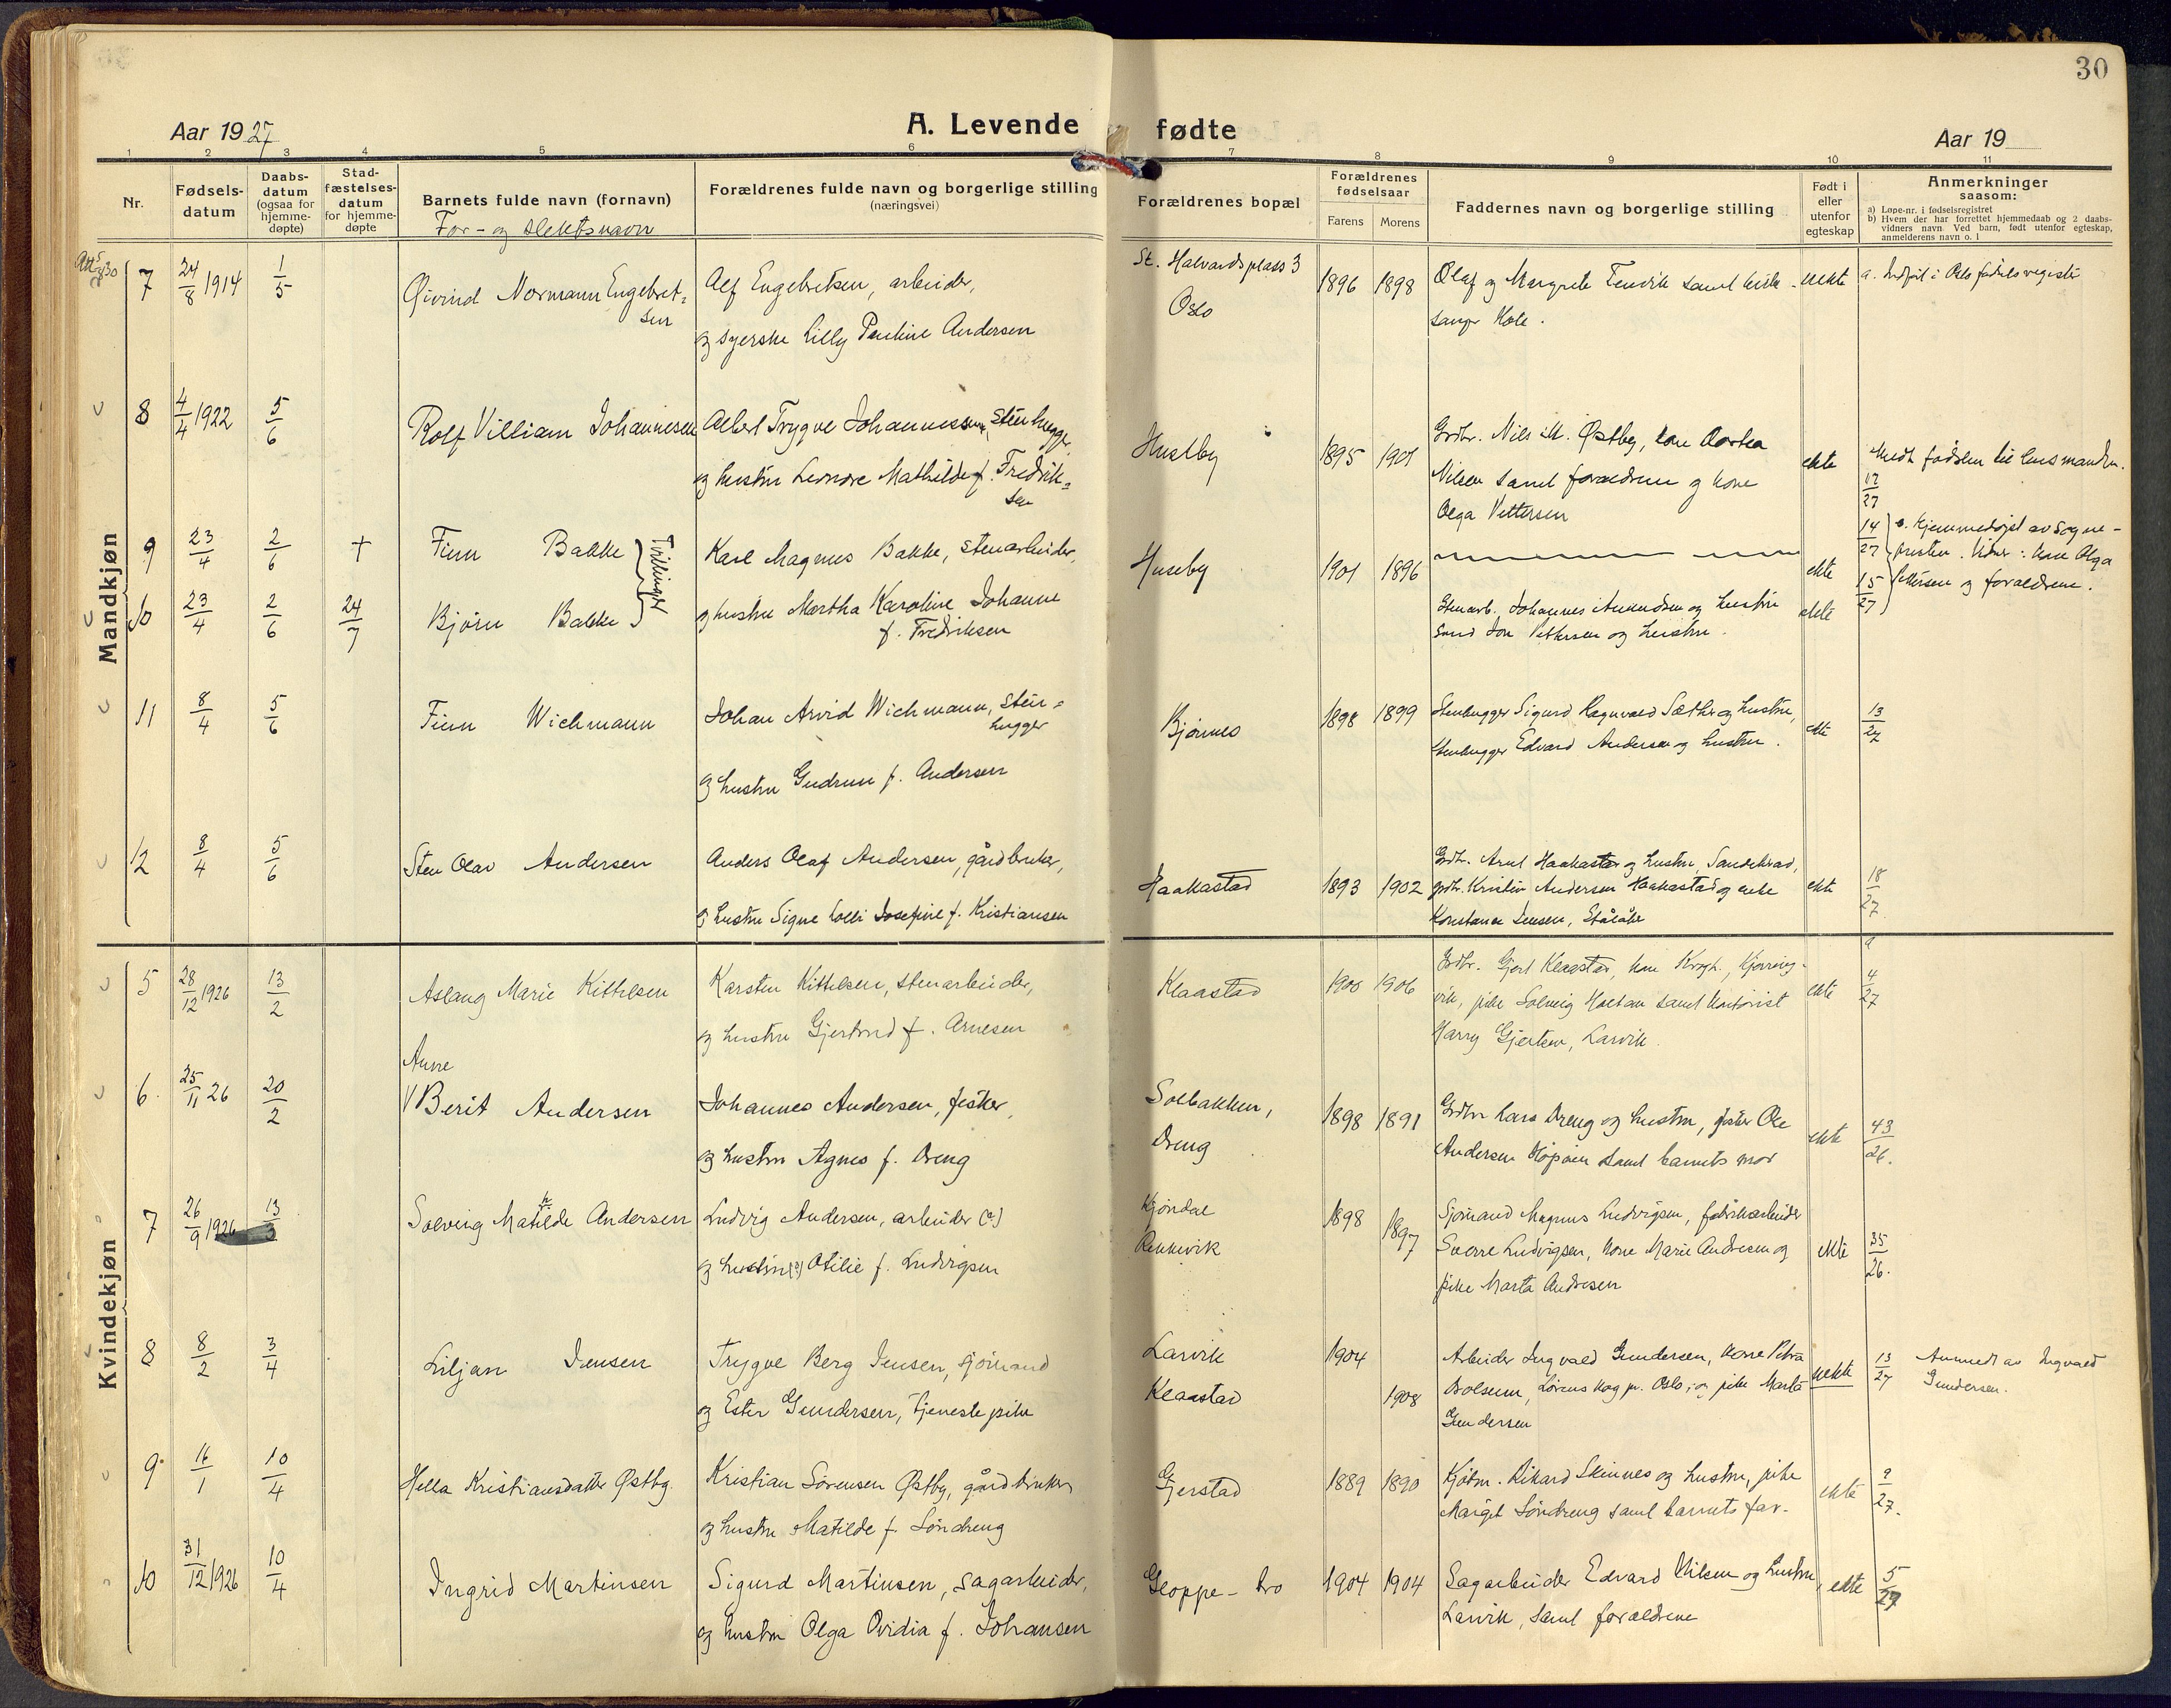 30
Aar 1927
A. Levende fødte
Aar 19
1 2 3 4 5 6 7 8 9 10 11
Nr.
Fødsels-
datum
Daabs-
datum
(ogsaa for
hjemme-
døpte)
Stad-
fæstelses-
datum
for hjemme-
døpte
Barnets fulde navn (fornavn)
For- og slektsnavn
Forældrenes fulde navn og borgerlige stilling
(næringsvei)
Forældrenes bopæl
Forældrenes
fødselsaar
Farens Morens
Faddernes navn og borgerlige stilling
Født i
eller
utenfor
egteskap
Anmerkninger
saasom:
a) Løpe-nr. i fødselsregistret
b) Hvem der har forrettet hjemmedaab og 2 daabs-
vidners navn. Ved barn, født utenfor egteskap,
anmelderens navn o. l
Mandkjøn
7 24/8 1914 1/5 Øivind Normann Engebret=
sen
Alf Engebretsen, arbeider,
og syerske Lilly Pauline Andersen
St. Halvards plass 3
Oslo
1896 1898
Olaf og Margrete Fenvik samt
Hole.
uekte
a. Indført i Oslo fødselsregister
8 4/4 1922 5/6 Rolf Villiam Johannesen
Albert Trygve Johannessen, stenhugger,
og hustru Leonore Mathilde f. Fredrik=
sen
Huseby
1895 1901
Grdbr. Nils M. Østby, kone Dorthea
Nilsen samt forældrene og kone
Olga Pettersen
ekte
Meldt fødslen til lensmanden.
12/27
9 23/4 2/6 † Finn Bakke
Tvillinger
Karl Magnus Bakke, stenarbeider,
Huseby
1901 1896
ekte
14/27
b. Hjemmedøpt av sogne-
presten. Vidner: kone Olga
Pettersen og forældrene.
10 23/4 2/6 24/7 Bjørn Bakke
og hustru Martha Karoline Johanne
f. Fredriksen
Stenarb. Johannes Amundsen og hustru
samt Jon Pettersen og hustru.
ekte
15/27
11 8/4 5/6 Finn Wichmann
Johan Arvid Wichmann, sten=
hugger
og hustru Gudrun f. Andersen
Bjørnes
1898 1899
Stenhugger Sigurd Ragnvald Sæther og hustru,
stenhugger Edvard Andersen og hustru.
ekte
13/27
12 8/4 5/6 Sten Olav Andersen
Anders Olaf Andersen, gårdbruker,
og hustru Signe Lolli Josefine f. Kristiansen
Haakastad
1893 1902
Grdbr. Arnt Haakastad og hustru, Sandekrad,
grdbr. Kristin Andersen Haakastad og enke
Konstanse Jensen, Stålåke
ekte
18/27
Kvindekjøn
5 28/12 1926 13/2 Aslaug Marie Kittelsen
Karsten Kittelsen, stenarbeider,
og hustru Gjertrud f. Arnesen
Klaastad
1900 1906
Grdbr. Gjert Klaastad, kone Krogh, Kjerring-
vik, pike Solveig Holtan samt kontorist
Harry Gjertsen, Larvik.
ekte
a
4/27
6. 25/11 26 20/2 Anne
V Berit Andersen
Johannes Andersen, fisker,
og hustru Agnes f. Dreng
Solbakken,
Dreng
1898 1891
Grdbr Lars Dreng og hustru, fisker Ole
Andersen samt barnets mor
ekte
43/26.
7 26/9 1926 13/3 Solveig Mathilde Andersen
Ludvig Andersen, arbeider (?)
og hustru (?) Otilie f. Ludvigsen
Kjøndal
Rekkevik
1898 1897
Sjømand Magnus Ludvigsen, fabrikarbeider
Sverre Ludvigsen, kone Marie Andresen og
pike Marta Andresen
ekte
35/26.
8 8/2 3/4 Liljan Jensen
Trygve Berg Jensen, sjømand
og Ester Gundersen, tjenestepike
Larvik
Klaastad
1904 1908
Arbeider Ingvald Gundersen, kone Petra
Bolsum, Lørenskog pr. Oslo, og pike Marta
Gundersen
uekte
13/27
Anmeldt av Ingvald
Gundersen.
9. 16/1 10/4 Hella Kristiansdatter Østby.
Kristian Sørensen Østby, gårdbruker
og hustru Matilde f. Søndreng
Gjerstad
1889 1890
Kjøbm. Rikard Skinnes og hustru, pike
Margit Søndreng samt barnets far.
ekte
9/27.
10 31/12 1926 10/4 Ingrid Martinsen
Sigurd Martinsen, sagarbeider,
og hustru Olga Ovidia f. Johansen
Gloppe-bro
1904 1904
Sagarbeider Edvard Nilsen og hustru,
Larvik, samt forældrene
ekte
5/27